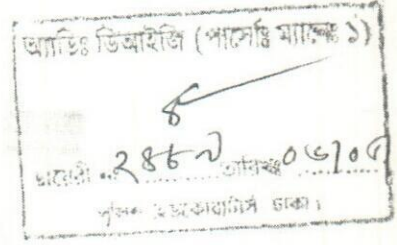 অ্যাডিঃ ডিআইজি (পার্সোঃ ম্যানেঃ ১)
৪
ডায়েরী ..২৪৮৯......তারিখঃ০৬/০৫
পুলিশ হেডকোয়ার্টার্স ঢাকা।